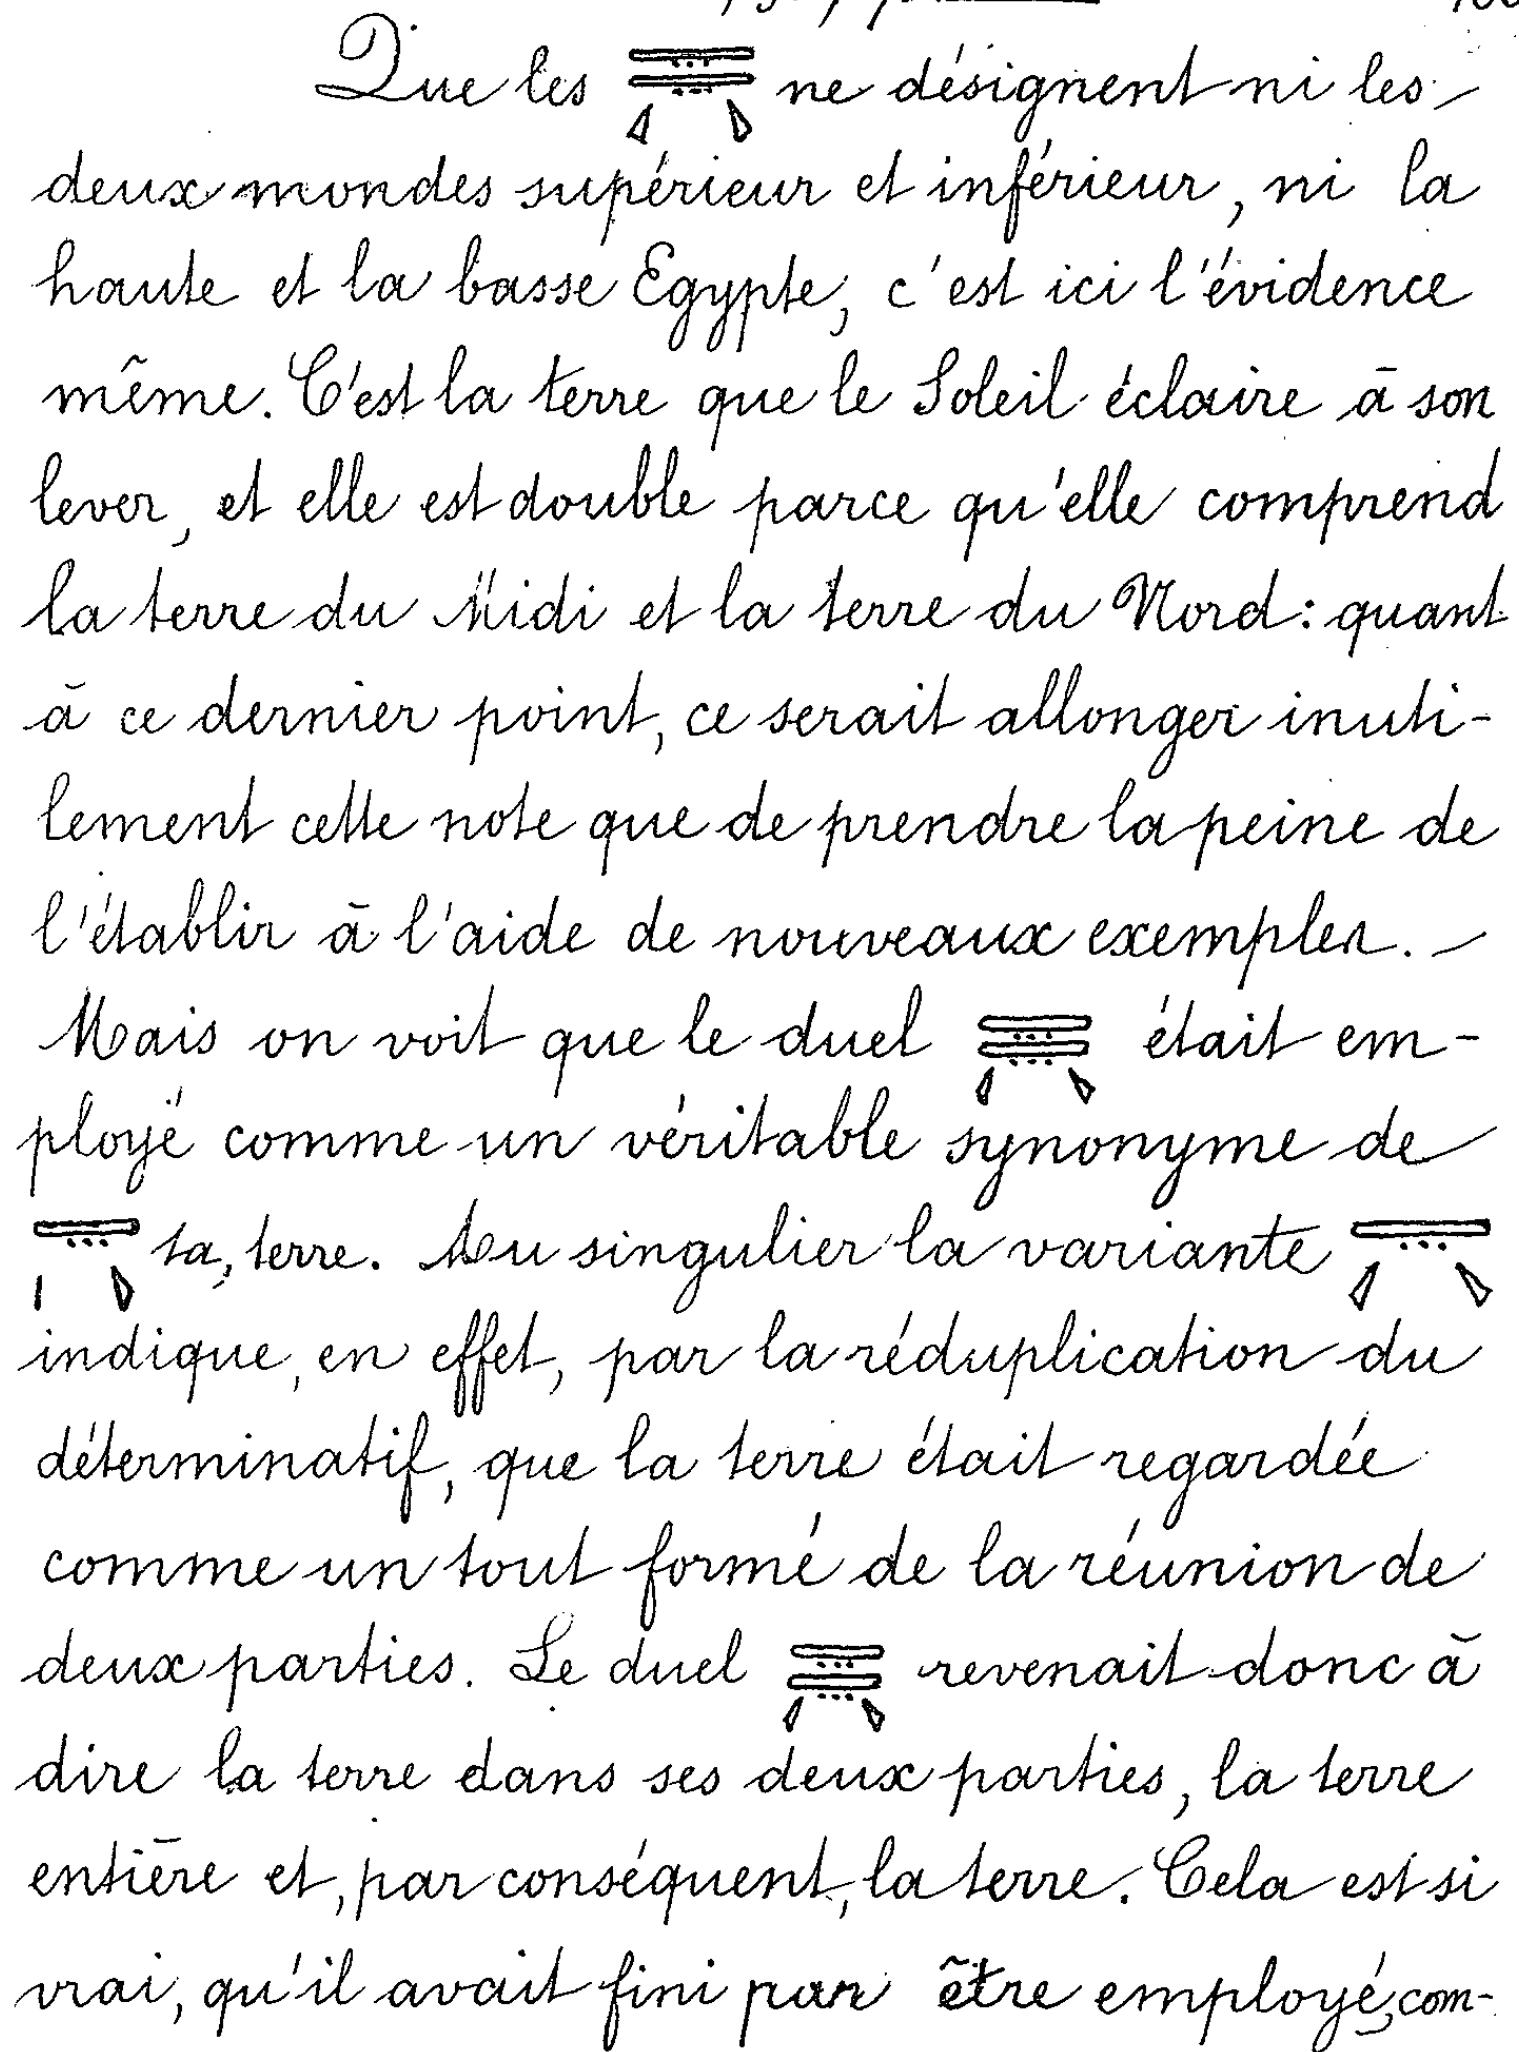 Que les 𓇿𓇿𓈅𓈅 ne désignent ni les
deux mondes supérieur et inférieur, ni la
haute et la basse Egypte, c'est ici l'évidence
même. C'est la terre que le Soleil éclaire à son
lever, et elle est double parce qu'elle comprend
la terre du Midi et la terre du Nord : quant
à ce dernier point, ce serait allonger inuti-
lement cette note que de prendre la peine de
l'établir à l'aide de nouveaux exemples. —
Mais on voit que le duel était em-
ployé comme un véritable synonyme de
ta, terre. Au singulier la variante
indique, en effet, par la réduplication du
déterminatif, que la terre était regardée
comme un tout formé de la réunion de
deux parties. Le duel revenait donc à
dire la terre dans ses deux parties, la terre
entière et, par conséquent, la terre. Cela est si
vrai, qu'il avait fini par être employé, com-